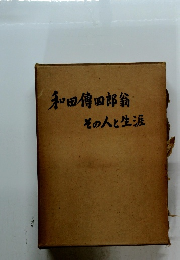 和田傳四郎翁
その人と生涯